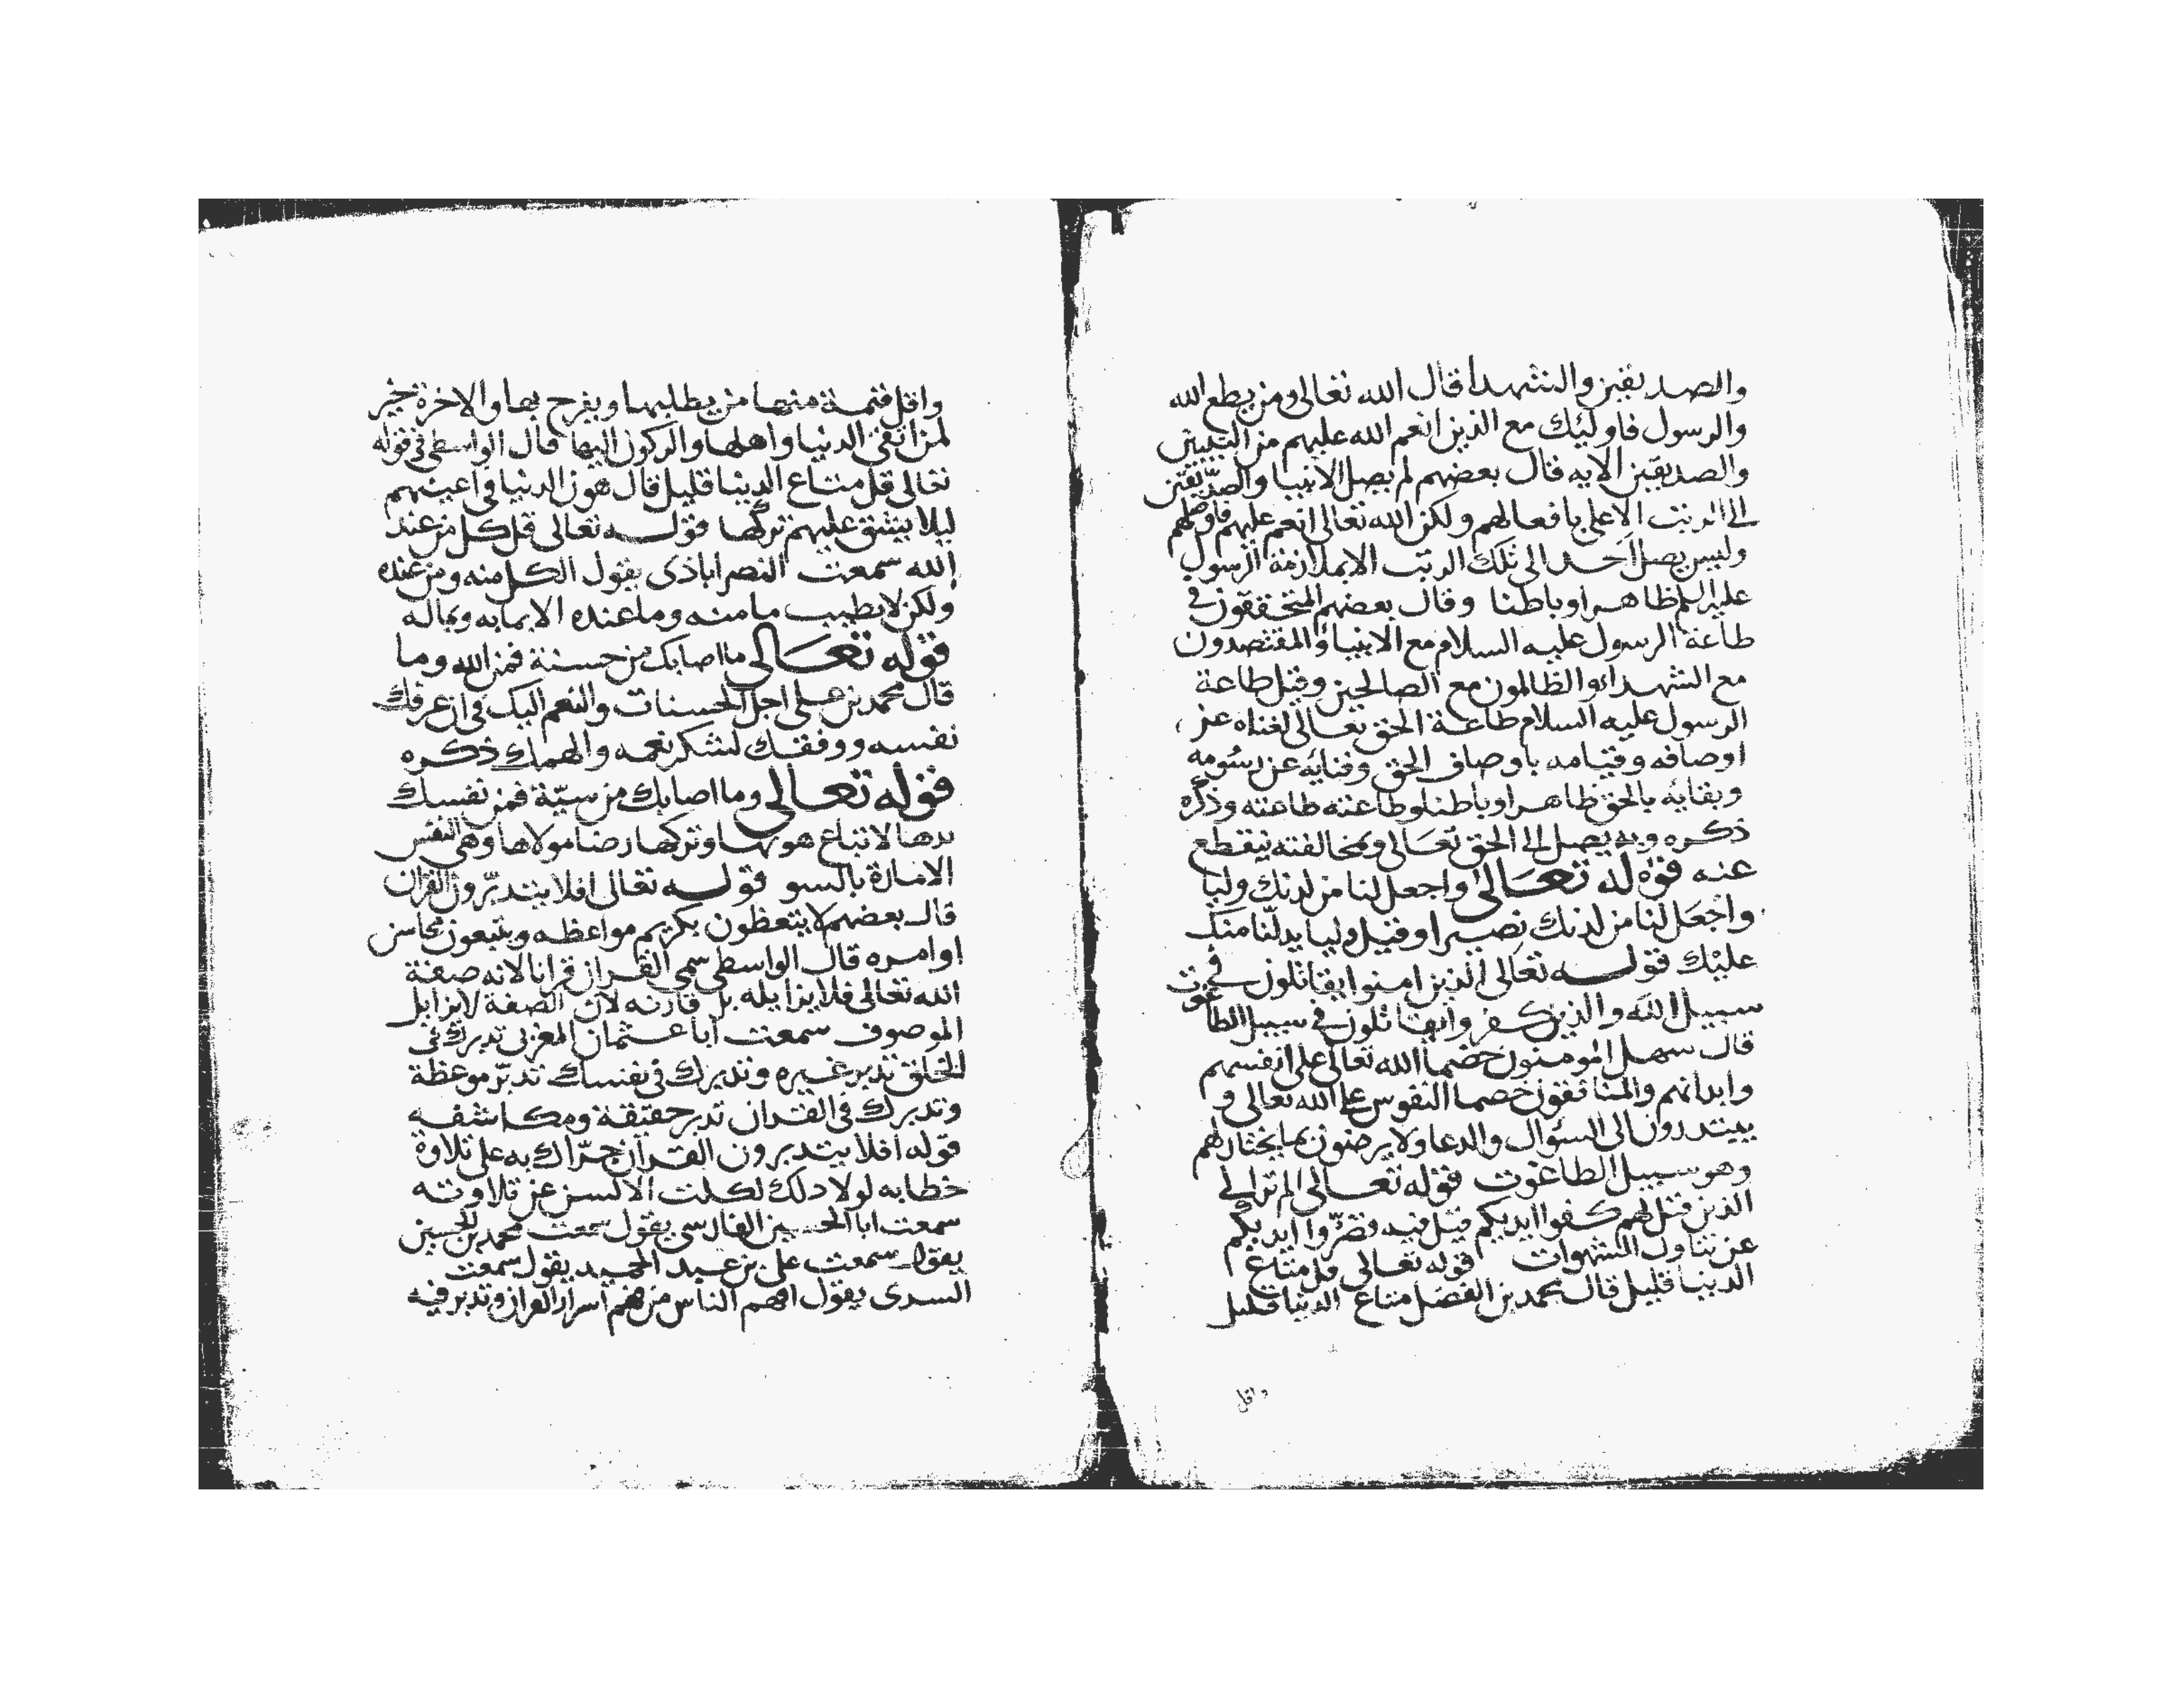 والصديقين والشهدا قال الله تعالى ومن يطع الله
والرسول فاوليك مع الذين انعم الله عليهم من النبيين
والصديقين الايه قال بعضهم لم يصل الانبيا والصديقين
الى الرتبت الاعلى بافعالهم ولكن الله تعالى انعم عليهم فاوصلهم
وليس يصل احد الى تلك الرتب الا بملازمة الرسول
عليه السلم ظاهرا وباطنا وقال بعضهم المتحققون في
طاعة الرسول عليه السلام مع الانبيا والمقتصدون
مع الشهداء والظالمون مع الصالحين وقيل طاعة
الرسول عليه السلام طاعة الحق تعالى لفناه عن
اوصافه وقيامه باوصاف الحق وفنايه عن رسومه
وبقايه بالحق ظاهرا وباطنا وطاعته طاعته وذكره
ذكره وبه يصل الى الحق تعالى وبمخالفته ينقطع
عنه قوله تعالى واجعل لنا من لدنك وليا
واجعل لنا من لدنك نصيرا وقيل وليا يدلنا منك
عليك قوله تعالى الذين امنوا يقاتلون في
سبيل الله والذين كفروا يقاتلون في سبيل الطاغوت
قال سهل المومنون خصما الله تعالى على انفسهم
وابدانهم والمنافقون خصما النفوس على الله تعالى و
يبتدرون الى السؤال والدعا ولا يرضون بما يختار لهم
وهو سبيل الطاغوت قوله تعالى الم تر الى
الذين قيل لهم كفوا ايديكم قيل فيه قصروا ايديكم
عن تناول الشهوات قوله تعالى قل متاع
الدنيا قليل قال محمد بن الفضل متاع الدنيا قليل
واقل
واقل قيمة منها من يطلبها ويفرح بها والاخرة خير
لمن اتقى الدنيا واهلها والركون اليها قال الواسطى في قوله
تعالى قل متاع الدنيا قليل قال هون الدنيا في اعينهم
ليلا يشق عليهم تركها قوله تعالى قل كل من عند
الله سمعت النصراباذى يقول الكل منه ومن عنده
ولكن لا يطيب ما منه وما عنده الا بما به وبماله
قوله تعالى ما اصابك من حسنة فمن الله وما
قال محمد بن على اجل الحسنات والنعم اليك في ان عرفك
نفسه ووفقك لشكر نعمه والهمك ذكره
قوله تعالى وما اصابك من سيّة فمن نفسك
لاتباع هوىها وتركها رضا مولاها وهي النفس
الامارة بالسو قوله تعالى افلا يتدبّرون القران
قال بعضهم لا يتعظون بكريم مواعظه ويتبعون محاسن
اوامره قال الواسطى سمى القران قرانا لانه صفة
الله تعالى فلا يزايله بل قارنه لان الصفة لا يزايل
الموصوف سمعت ابا عثمان المغربى تدبرك في
الخلق تدبر غيره وتدبرك في نفسك تدبّر موعظة
وتدبرك في القران تدبر حقيقة ومكاشفه
قوله افلا يتدبرون القرآن جرّاك به على تلاوة
خطابه لولا ذلك لكلت الالسن عن تلاوته
سمعت ابا الحسين الفارسى يقول سمعت محمد بن الحسين
يقول سمعت على بن عبد الحميد يقول سمعت
السرى يقول افهم الناس من فهم اسرار القران وتدبر فيه